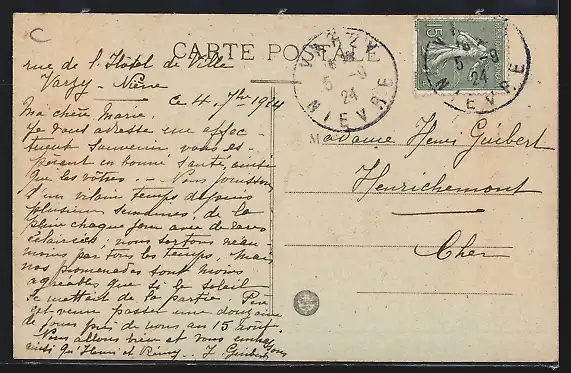 C
CARTE POSTALE
rue de l'Hôtel de Ville
Varzy - Nièvre
ce 4, 7bre 1924
Ma chère Marie.
Je vous adresse un affec-
tueux souvenir vous es-
pérant en bonne santé ainsi
que les vôtres. Nous jouissons
d'un vilain temps depuis
plusieurs semaines, de la
pluie chaque jour avec de rares
éclaircies; nous sortons néan-
moins par tous les temps, mais
nos promenades sont moins
agréables que si le soleil
se mettait de la partie. Père
est venu passer une douzaine
de jours près de nous au 15 Août.
Nous allons bien et vous embrassons
ainsi qu'Henri et Rémy. J. Guibert
VARZY
5 - 9
24
NIEVRE
15c
5 - 9
24
NIEVRE
Madame Henri Guibert
Henrichemont
Cher